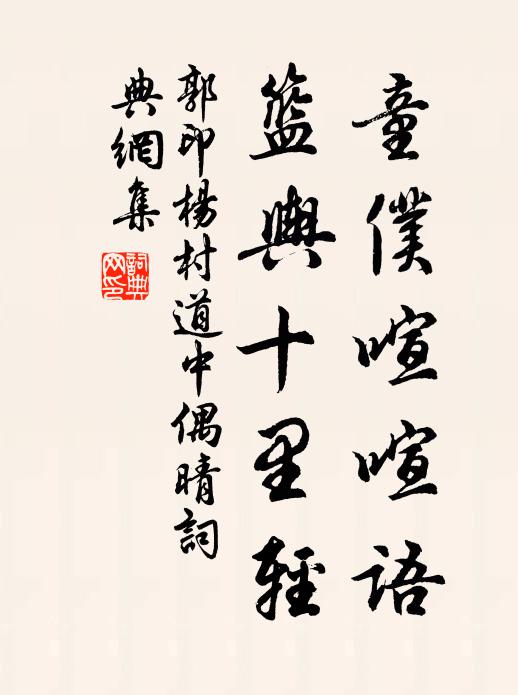 童僕喧喧語
籃輿十里輕
郭印楊村道中偶晴詞
典網集
詞典網印